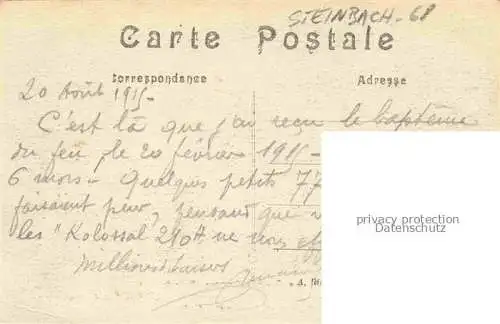 STEINBACH - 68
Carte Postale
Correspondance
Adresse
20 Août 1915 -
C'est là que j'ai reçu le baptême
du feu, le 20 février 1915 -
6 mois - Quelques petits 77
faisaient peur, pensant que
les "Kolossal 210" ne nous
Milliers baisers
privacy protection
Datenschutz